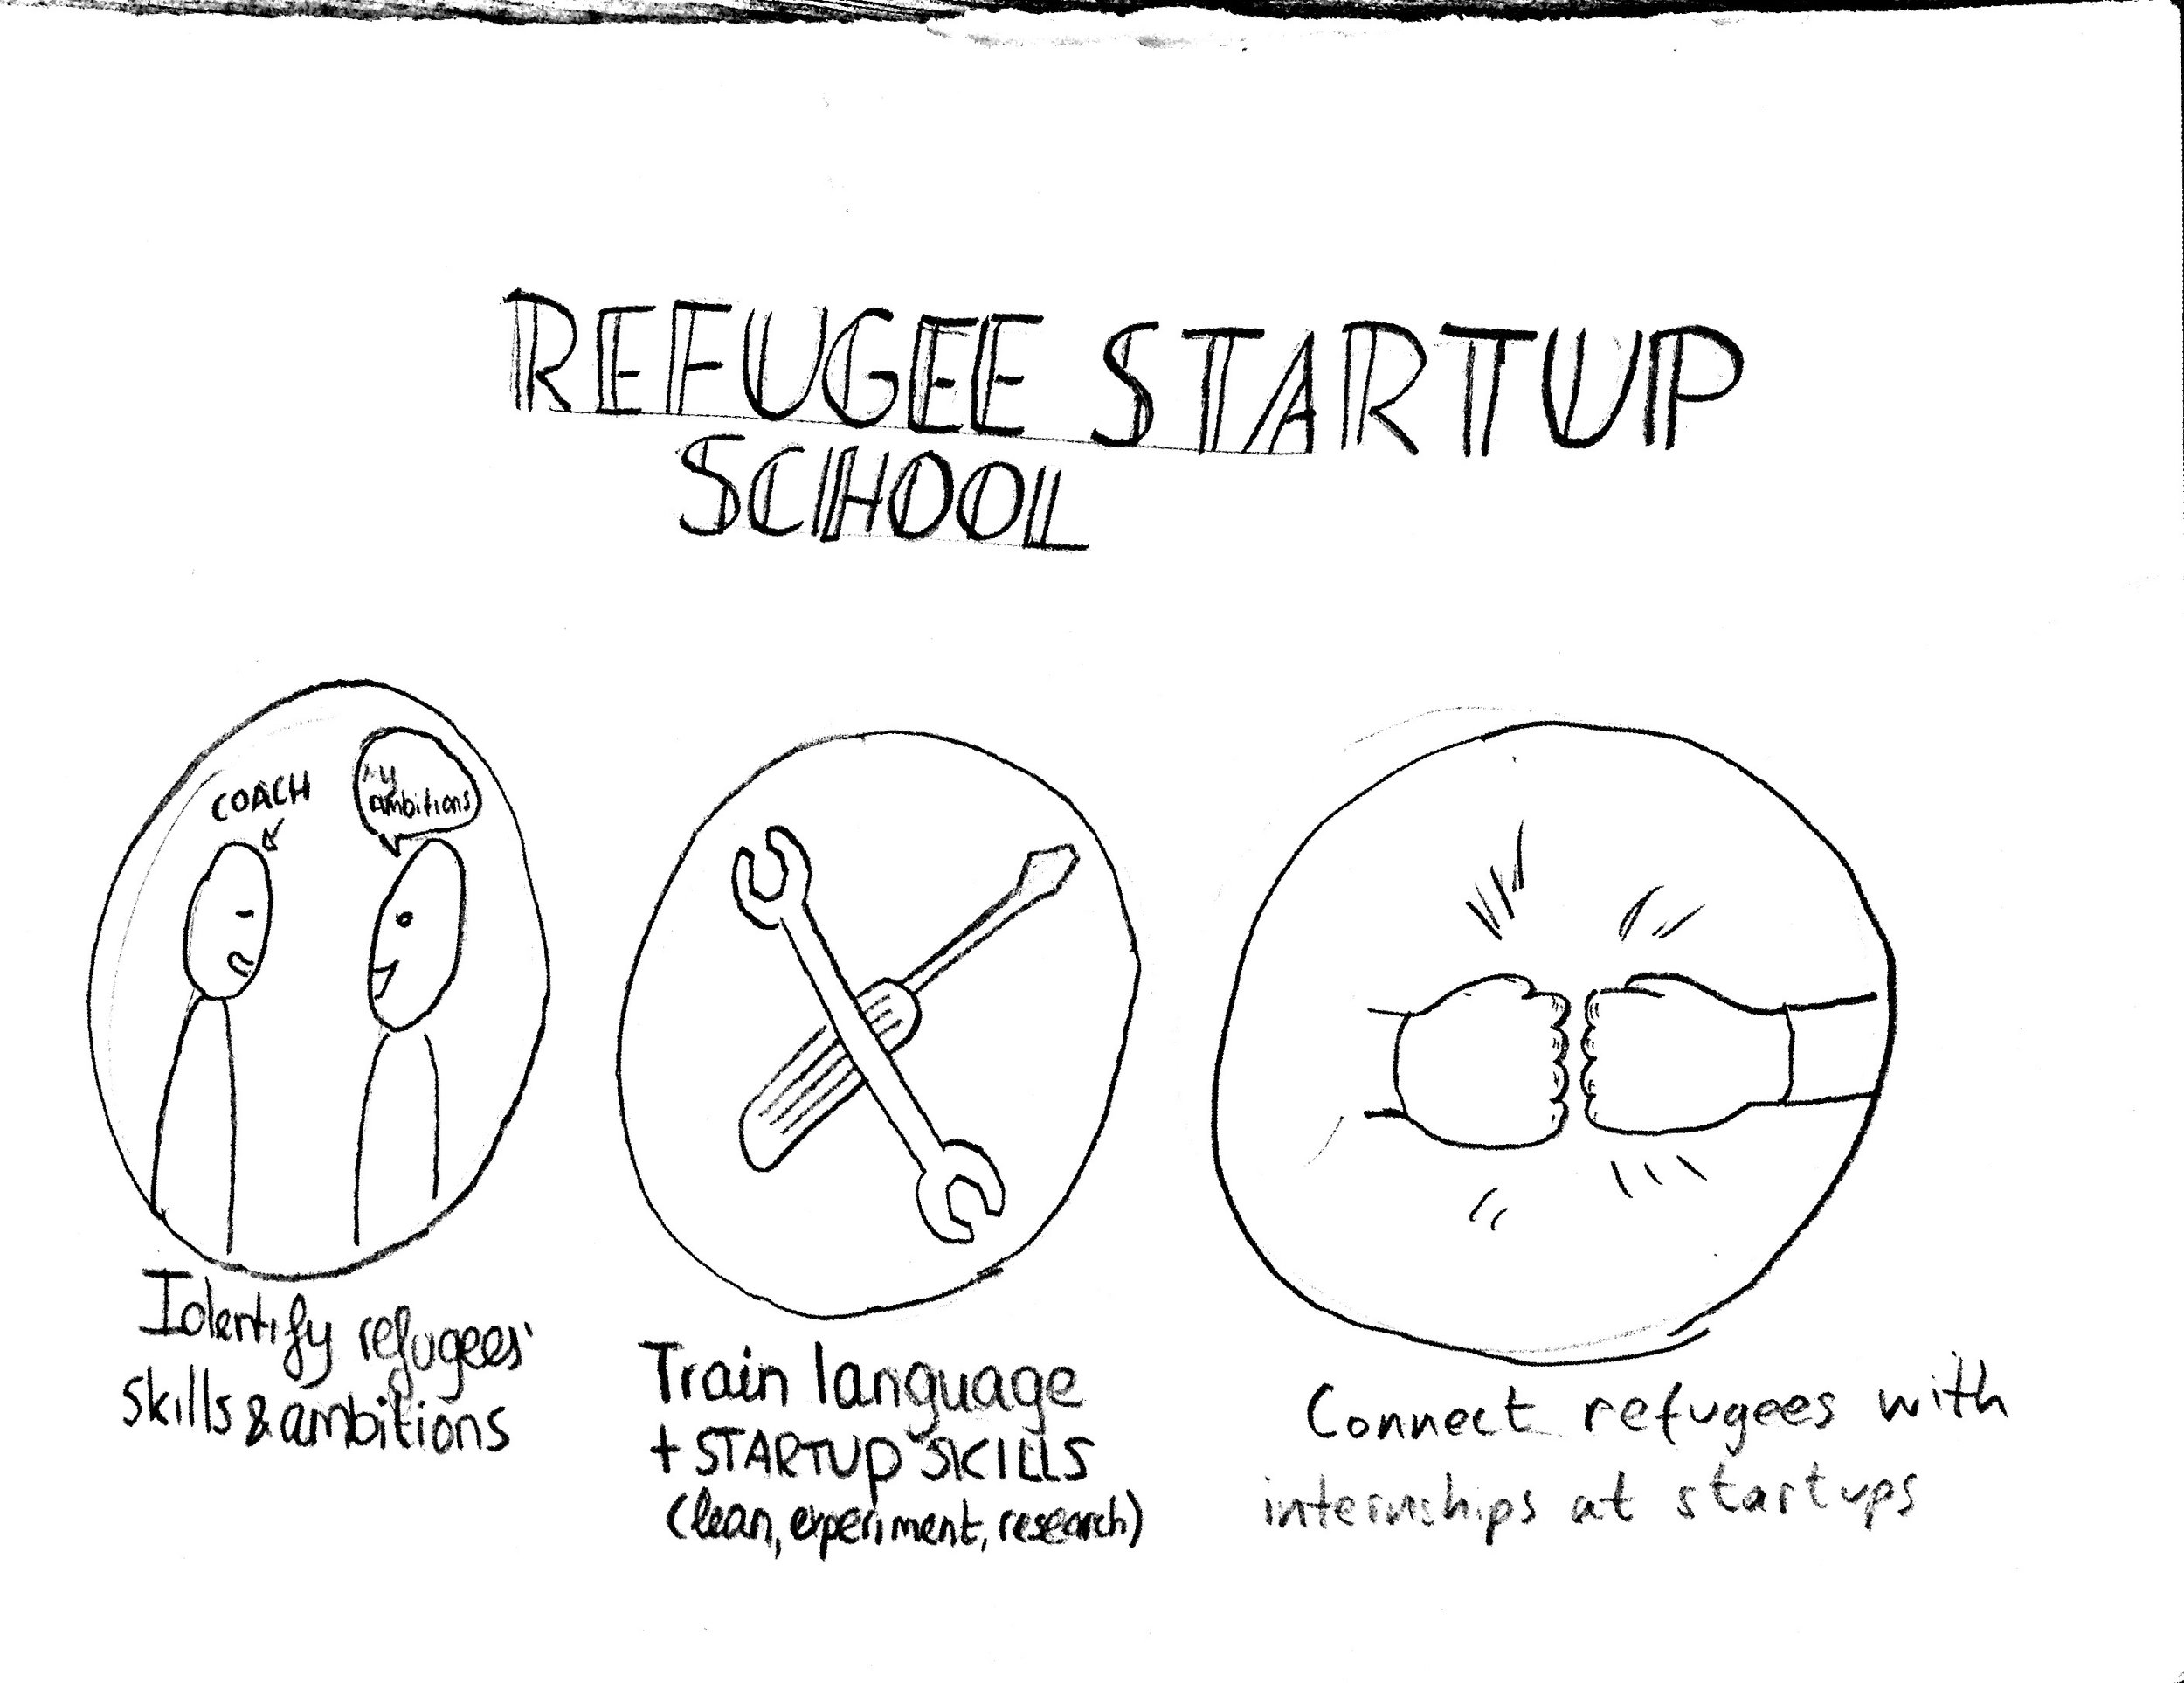 REFUGEE STARTUP
SCHOOL
COACH
My
ambitions
Identify refugees'
skills & ambitions
Train language
+ STARTUP SKILLS
(lean, experiment, research)
Connect refugees with
internships at startups